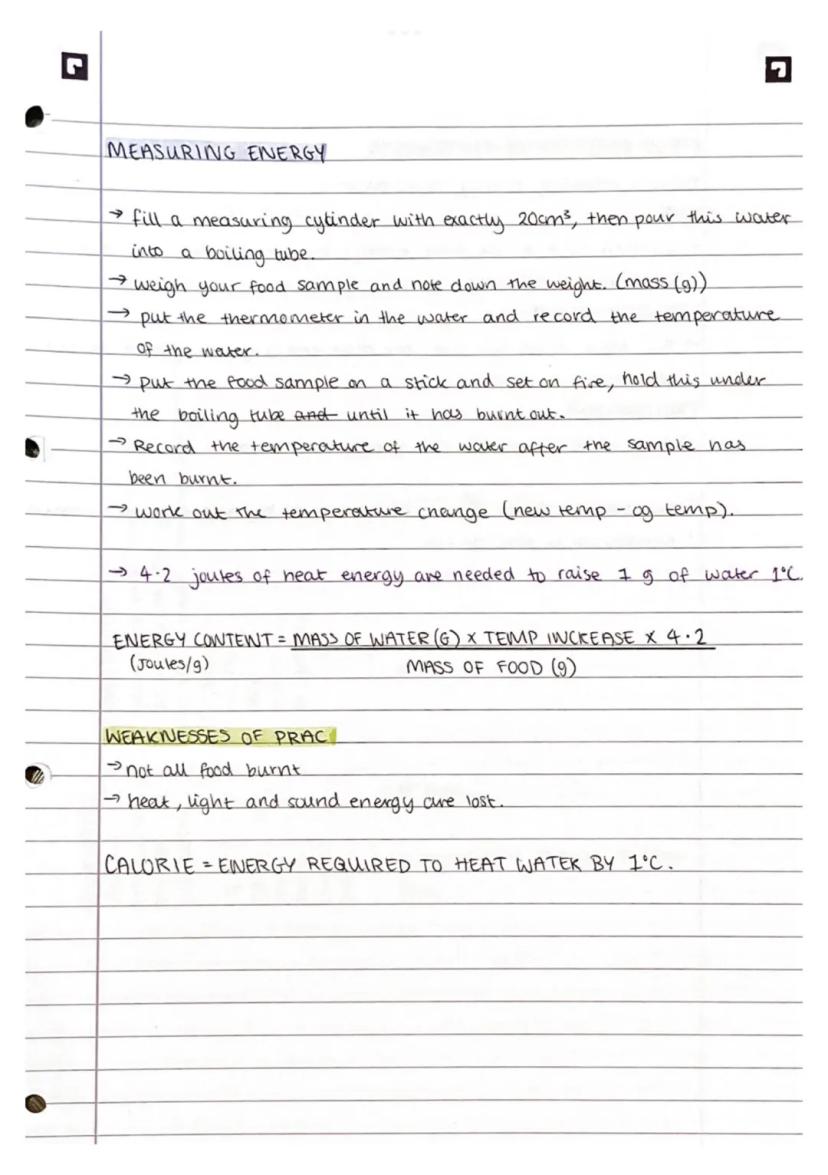 MEASURING ENERGY
→ fill a measuring cylinder with exactly 20cm³, then pour this water
into a boiling tube.
→ weigh your food sample and note down the weight. (mass (g))
→ put the thermometer in the water and record the temperature
of the water.
→ put the food sample on a stick and set on fire, hold this under
the boiling tube and until it has burnt out.
→ Record the temperature of the water after the sample has
been burnt.
→ work out the temperature change (new temp - og temp).
→ 4.2 joules of heat energy are needed to raise 1 g of water 1°C.
ENERGY CONTENT = MASS OF WATER (G) X TEMP INCREASE X 4.2
(Joules/g) MASS OF FOOD (g)
WEAKNESSES OF PRAC
→ not all food burnt
→ heat, light and sound energy are lost.
CALORIE = ENERGY REQUIRED TO HEAT WATER BY 1°C.